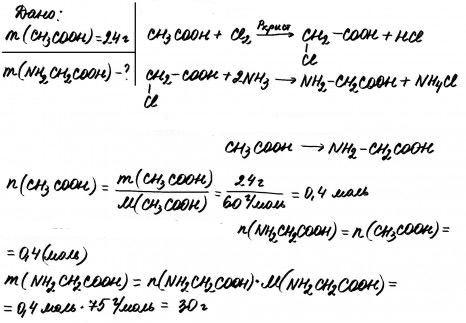 Дано:
m(CH3COOH)=24г
m(NH2CH2COOH)-?
CH3COOH + Cl2 →(Pкрист) CH2-COOH + HCl
Cl
CH2-COOH + 2NH3 → NH2-CH2COOH + NH4Cl
Cl
CH3COOH → NH2-CH2COOH
n(CH3COOH) = m(CH3COOH)/M(CH3COOH) = 24г/60г/моль = 0,4 моль
n(NH2CH2COOH) = n(CH3COOH) =
= 0,4(моль)
m(NH2CH2COOH) = n(NH2CH2COOH)·M(NH2CH2COOH) =
= 0,4 моль · 75 г/моль = 30г